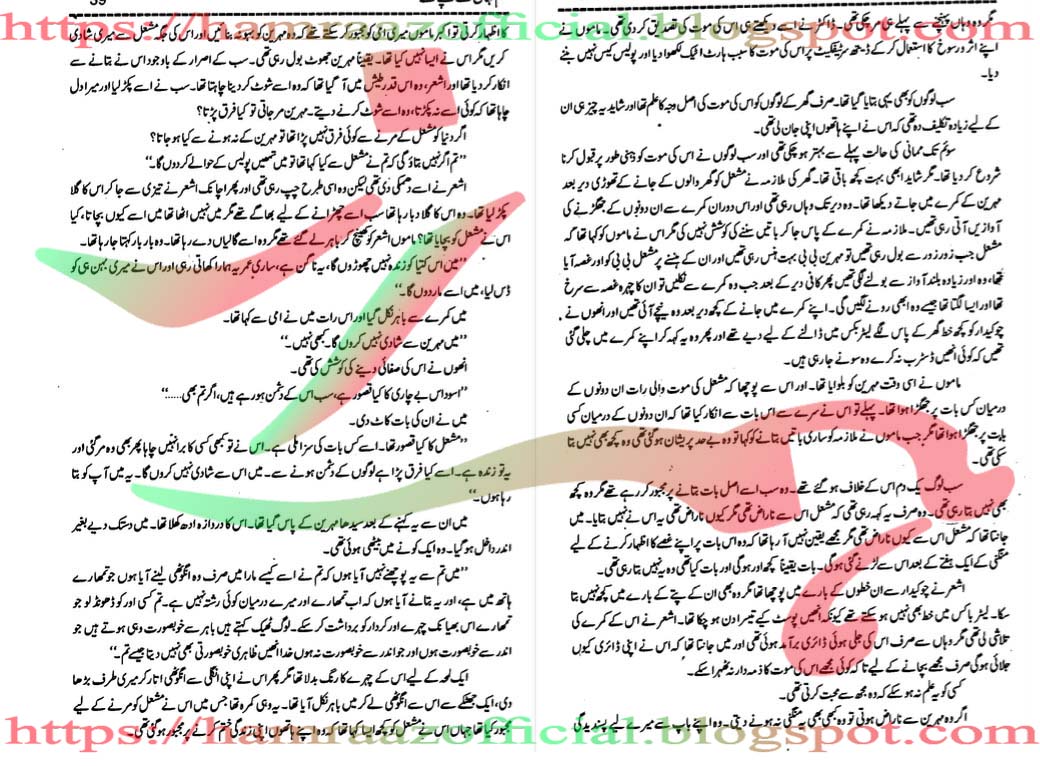 https://hamraazofficial.blogspot.com
مگر وہ وہاں پہنچنے سے پہلے ہی مر چکی تھی۔ ڈاکٹر نے اسے دیکھتے ہی اس کی موت کی تصدیق کر دی تھی۔ ماموں نے
اپنے اثر و رسوخ کا استعمال کر کے ڈیتھ سرٹیفکیٹ پر اس کی موت کا سبب ہارٹ اٹیک لکھوا دیا اور پولیس کیس نہیں بننے
دیا۔
سب لوگوں کو بھی یہی بتایا گیا تھا۔ صرف گھر کے لوگوں کو اس کی موت کی اصل وجہ کا علم تھا اور شاید یہ چیز ہی ان
کے لیے زیادہ تکلیف دہ تھی کہ اس نے اپنے ہاتھوں اپنی جان لی تھی۔
سوئم تک ممانی کی حالت پہلے سے بہتر ہو چکی تھی اور سب لوگوں نے اس کی موت کو ذہنی طور پر قبول کرنا
شروع کر دیا تھا۔ مگر شاید ابھی بہت کچھ باقی تھا۔ گھر کی ملازمہ نے مشعل کو گھر والوں کے جانے کے تھوڑی دیر بعد
مہرین کے کمرے میں جاتے دیکھا تھا۔ وہ دیر تک وہاں رہی تھی اور اس دوران کمرے سے ان دونوں کے جھگڑنے کی
آوازیں آتی رہی تھیں۔ ملازمہ نے کمرے کے پاس جا کر باتیں سننے کی کوشش نہیں کی مگر اس نے ماموں کو کہا تھا کہ
مشعل جب زور زور سے بول رہی تھیں تو مہرین بی بی بہت ہنس رہی تھیں اور ان کے ہنسنے پر مشعل بی بی کو اور غصہ آیا
تھا، وہ اور زیادہ بلند آواز سے بولنے لگی تھیں پھر کافی دیر کے بعد جب وہ کمرے سے نکلیں تو ان کا چہرہ غصہ سے سرخ
تھا اور ایسا لگتا تھا جیسے وہ ابھی رونے لگیں گی۔ اپنے کمرے میں جانے کے کچھ دیر بعد وہ نیچے آئی تھیں اور انھوں نے
چوکیدار کو کچھ خط گھر کے پاس لگے لیٹر بکس میں ڈالنے کے لیے دیے تھے اور پھر وہ یہ کہہ کر اپنے کمرے میں چلی گئی
تھیں کہ کوئی انھیں ڈسٹرب نہ کرے وہ سونے جا رہی ہیں۔
ماموں نے اسی وقت مہرین کو بلوایا تھا۔ اور اس سے پوچھا کہ مشعل کی موت والی رات ان دونوں کے
درمیان کس بات پر جھگڑا ہوا تھا۔ پہلے تو اس نے سرے سے اس بات سے انکار کیا تھا کہ ان دونوں کے درمیان کسی
بات پر جھگڑا ہوا تھا مگر جب ماموں نے ملازمہ کو ساری باتیں بتانے کو کہا تو وہ بے حد پریشان ہو گئی تھی وہ کچھ بھی نہیں بتا
سکی تھی۔
سب لوگ یک دم اس کے خلاف ہو گئے تھے۔ وہ سب اسے اصل بات بتانے پر مجبور کر رہے تھے مگر وہ کچھ
بھی نہیں بتا رہی تھی۔ وہ صرف یہ کہہ رہی تھی کہ مشعل اس سے ناراض تھی مگر کیوں ناراض تھی یہ اس نے نہیں بتایا۔ میں
جانتا تھا کہ مشعل اس سے کیوں ناراض تھی مگر مجھے یقین نہیں آ رہا تھا کہ وہ اس بات پر اپنے غصے کا اظہار کرنے کے لیے
منگنی کے ایک ہفتے کے بعد اس سے لڑنے گئی ہو گی۔ بات یقیناً کچھ اور ہو گی اور بات کیا تھی وہ یہ نہیں بتا رہی تھی۔
اشعر نے چوکیدار سے ان خطوں کے بارے میں پوچھا تھا مگر وہ بھی ان کے پتے کے بارے میں کچھ نہیں بتا
سکا۔ لیٹر باکس میں خط بھی نہیں ہو سکتے تھے کیونکہ انھیں پوسٹ کیے تیسرا دن ہو چکا تھا۔ اشعر نے اس کے کمرے کی
تلاشی لی تھی مگر وہاں سے صرف اس کی جلی ہوئی ڈائری برآمد ہوئی تھی اور میں جانتا تھا کہ اس نے اپنی ڈائری کیوں
جلائی ہو گی صرف مجھے بچانے کے لیے تا کہ کوئی مجھے اس کی موت کا ذمہ دار نہ ٹھہرا سکے۔
کسی کو یہ علم نہ ہو سکے کہ وہ مجھ سے محبت کرتی تھی۔
اگر وہ مہرین سے ناراض ہوتی تو وہ کبھی بھی یہ منگنی نہ ہونے دیتی۔ وہ اپنے باپ سے میرے لیے پسندیدگی
کا اظہار کرتی تو اکبر ماموں میری امی کو مجبور کر سکتے تھے کہ وہ مہرین کو بہو نہ بنائیں اور اس کی جگہ مشعل سے میری شادی
کریں مگر اس نے ایسا نہیں کیا تھا۔ یقیناً مہرین جھوٹ بول رہی تھی۔ سب کے اصرار کے باوجود اس نے بتانے سے
انکار کر دیا تھا اور اشعر، وہ اس قدر طیش میں آ گیا تھا کہ وہ اسے شوٹ کر دینا چاہتا تھا۔ سب نے اسے پکڑ لیا اور میرا دل
چاہا تھا کہ کوئی اسے نہ پکڑتا، وہ اسے شوٹ کرنے دیتے۔ مہرین مر جاتی تو کیا فرق پڑتا؟
اگر دنیا کو مشعل کے مرنے سے کوئی فرق نہیں پڑا تھا تو مہرین کے نہ ہونے سے کیا ہو جاتا؟
”تم اگر نہیں بتاؤ گی کہ تم نے مشعل سے کیا کہا تھا تو میں تمھیں پولیس کے حوالے کر دوں گا۔“
اشعر نے اسے دھمکی دی تھی لیکن وہ اسی طرح چپ رہی تھی اور پھر اچانک اشعر نے تیزی سے جا کر اس کا گلا
پکڑ لیا تھا۔ وہ اس کا گلا دبا رہا تھا سب اسے چھڑانے کے لیے بھاگے تھے مگر میں نہیں اٹھا تھا میں اسے کیوں بچاتا، کیا
اس نے مشعل کو بچایا تھا؟ ماموں اشعر کو کھینچ کر باہر لے گئے تھے مگر وہ اسے گالیاں دے رہا تھا۔ وہ بار بار کہتا جا رہا تھا۔
”میں اس کتیا کو زندہ نہیں چھوڑوں گا، یہ ناگن ہے، ساری عمر یہ ہمارا کھاتی رہی اور اس نے میری بہن ہی کو
ڈس لیا، میں اسے مار دوں گا۔“
میں کمرے سے باہر نکل گیا اور اس رات میں نے امی سے کہا تھا۔
”میں مہرین سے شادی نہیں کروں گا۔ کبھی نہیں۔“
انھوں نے اس کی صفائی دینے کی کوشش کی تھی۔
”اسود اس بے چاری کا کیا قصور ہے، سب اس کے دشمن ہو رہے ہیں، اگر تم بھی......“
میں نے ان کی بات کاٹ دی۔
”مشعل کا کیا قصور تھا۔ اسے کس بات کی سزا ملی ہے۔ اس نے تو کبھی کسی کا برا نہیں چاہا پھر بھی وہ مر گئی اور
یہ تو زندہ ہے۔ اسے کیا فرق پڑا ہے لوگوں کے دشمن ہونے سے۔ میں اس سے شادی نہیں کروں گا۔ یہ میں آپ کو بتا
رہا ہوں۔“
میں ان سے یہ کہنے کے بعد سیدھا مہرین کے پاس گیا تھا۔ اس کا دروازہ ادھ کھلا تھا۔ میں دستک دیے بغیر
اندر داخل ہو گیا۔ وہ ایک کونے میں بیٹھی ہوئی تھی۔
”میں تم سے یہ پوچھنے نہیں آیا ہوں کہ تم نے اسے کیسے مارا میں صرف وہ انگوٹھی لینے آیا ہوں جو تمھارے
ہاتھ میں ہے، اور یہ بتانے آیا ہوں کہ اب تمھارے اور میرے درمیان کوئی رشتہ نہیں ہے۔ تم کسی اور کو ڈھونڈ لو جو
تمھارے اس بھیانک چہرے اور کردار کو برداشت کر سکے۔ لوگ ٹھیک کہتے ہیں باہر سے خوبصورت وہی ہوتے ہیں جو
اندر سے خوبصورت ہوں اور جو اندر سے خوبصورت نہ ہوں خدا انھیں ظاہری خوبصورتی بھی نہیں دیتا جیسے تم۔“
ایک لمحہ کے لیے اس کے چہرے کا رنگ بدلا تھا مگر پھر اس نے اپنی انگلی سے انگوٹھی اتار کر میری طرف بڑھا
دی، ایک جھٹکے سے اس سے انگوٹھی لے کر میں باہر نکل آیا تھا۔ یہ وہی کمرہ تھا جس میں اس نے مشعل کو مرنے کے لیے
مجبور کیا تھا جہاں اس نے مشعل کو کچھ ایسا کہا تھا کہ وہ اپنے ہاتھوں اپنی زندگی ختم کرنے پر مجبور ہو گئی تھی۔
https://hamraazofficial.blogspot.com